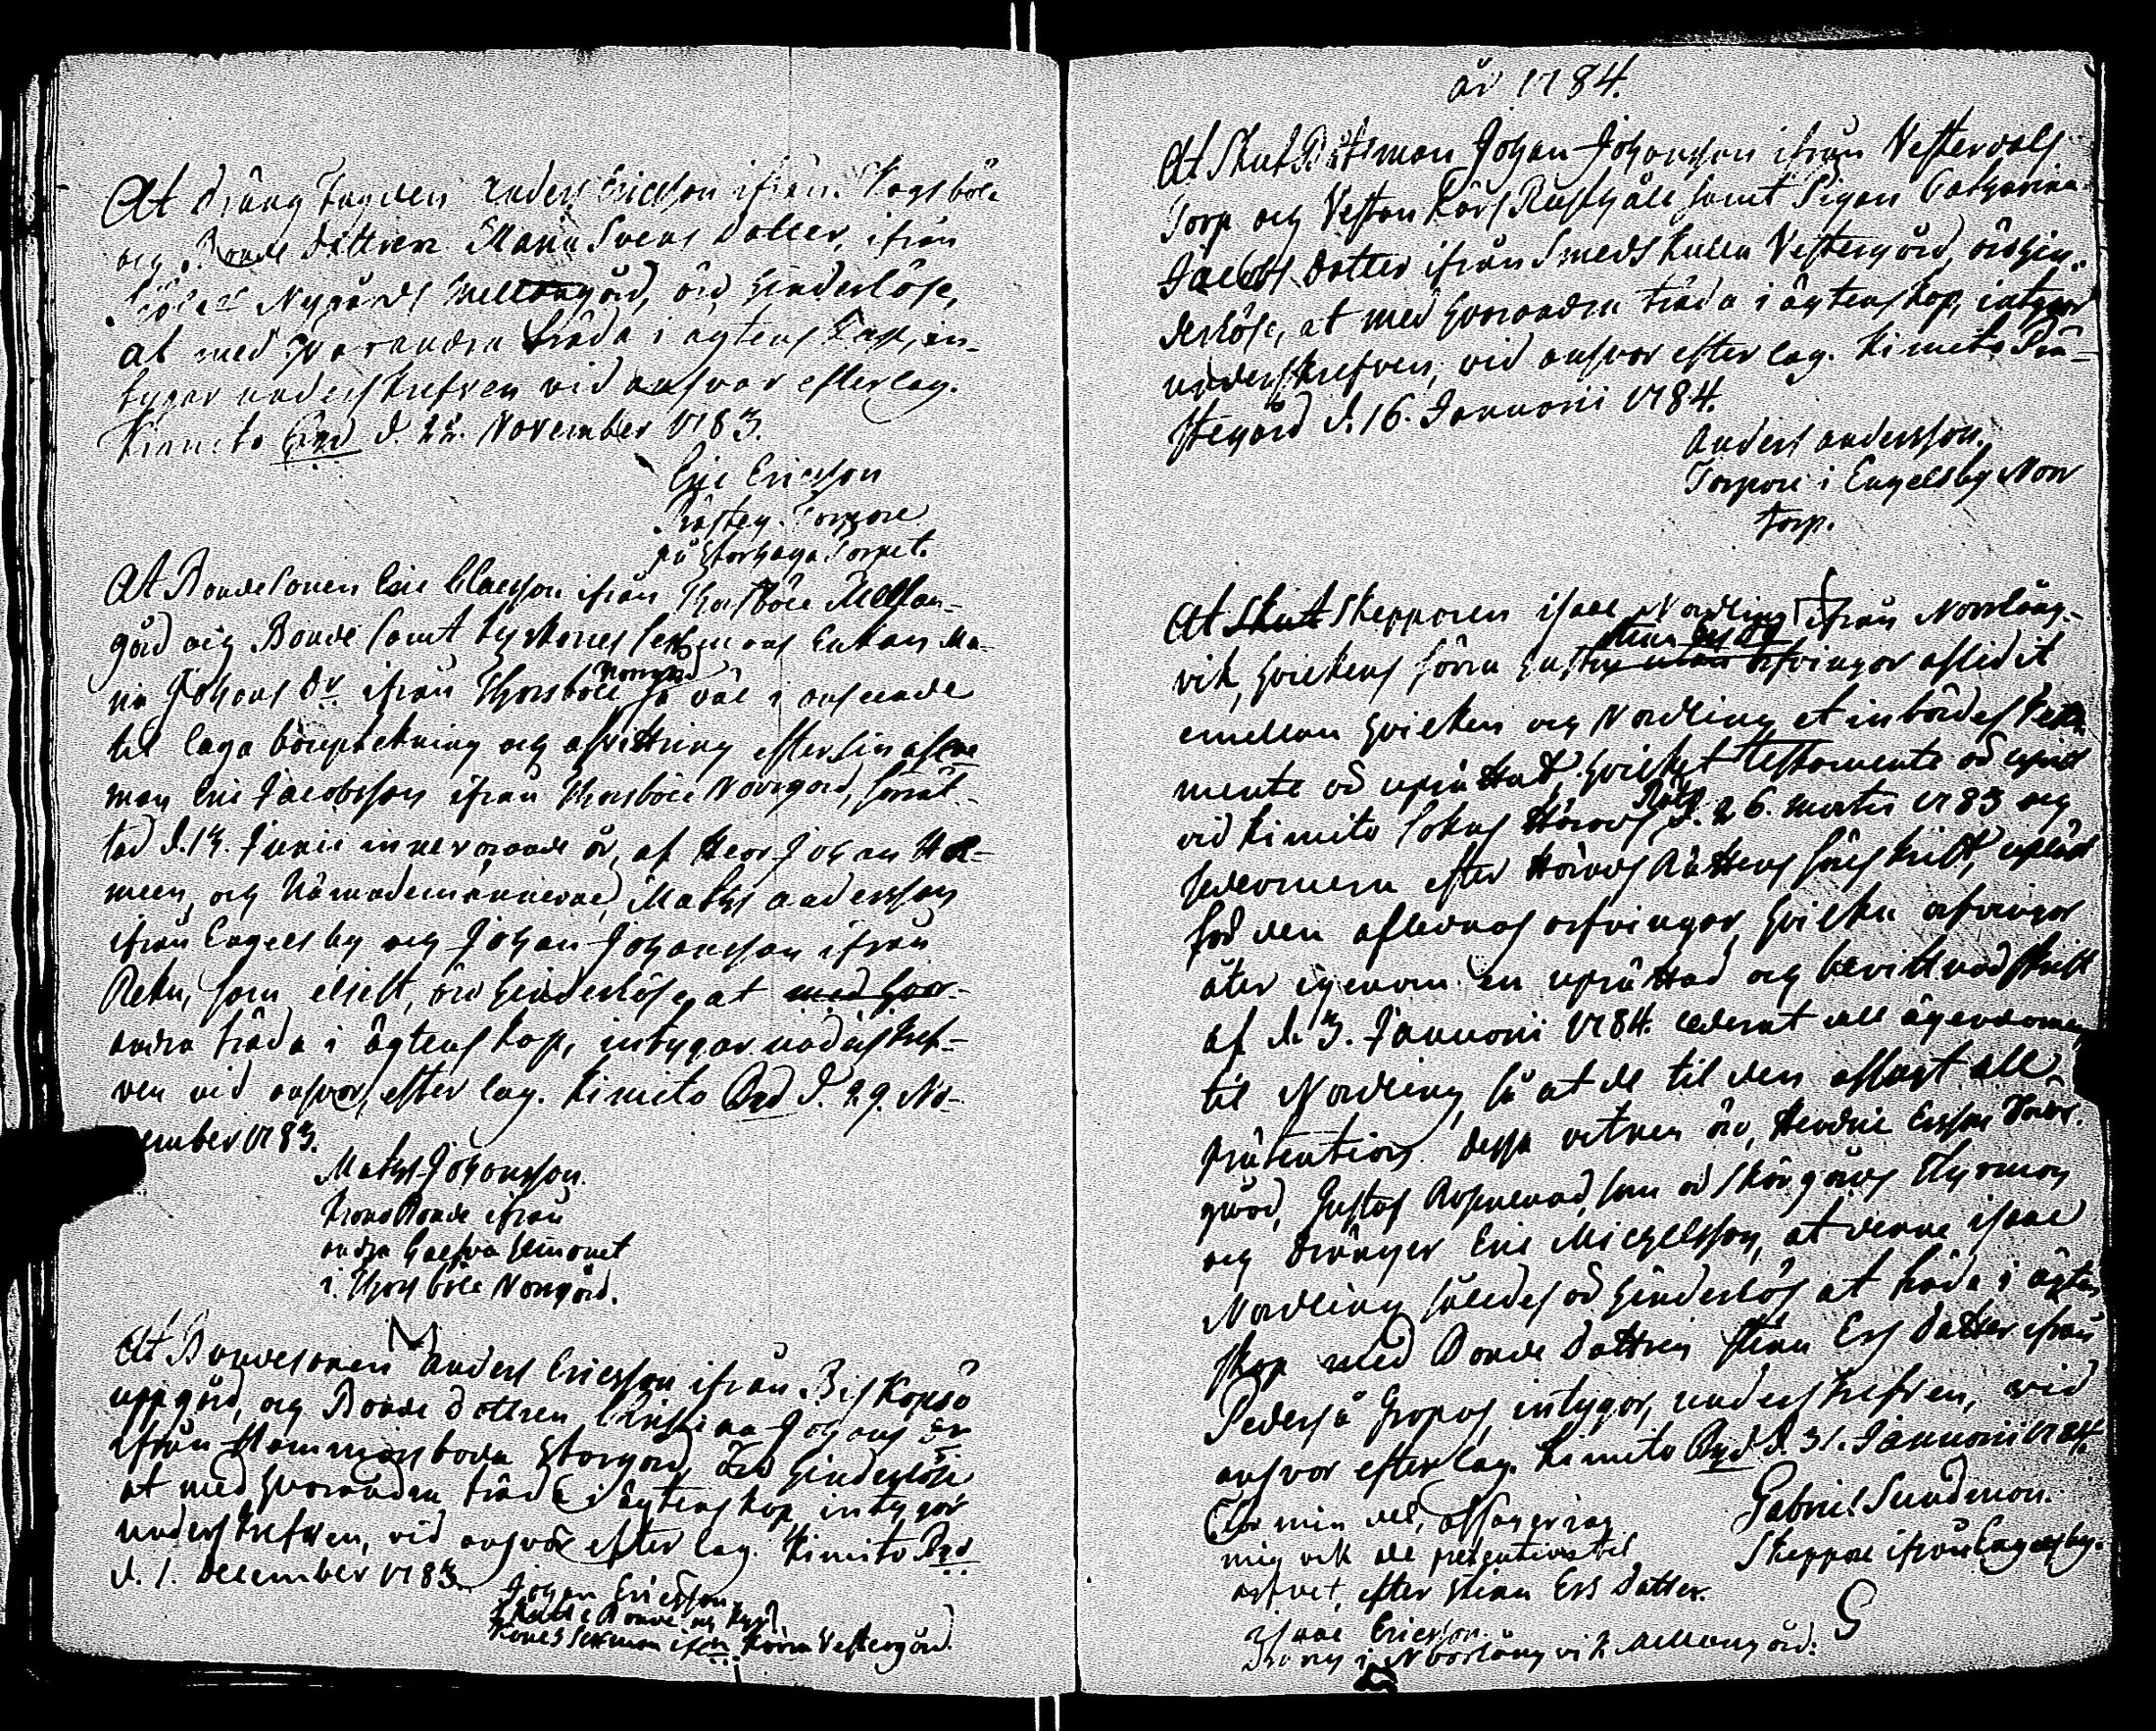 At dräng Anders Ericsson ifrån
och Bonde dottren Maria Svens dotter, ifrån
Nygårds Mellangård, äro hinderlöse,
at med hvarandra träda i ägtenskap, in-
tygar underskrefven vid ansvar efter lag.
Kimito d. 22. November 1783.
Eric Ericsson
Torpare
på Storhaga Torpet.
At Bondesonen Eric Claesson ifrån Thorsböle Mellan-
gård och Bonde samt kyrkones och Enkan Ma-
ria Johans dr ifrån Thorsböle Norrgård så väl i anseende
til laga bouptekning och afvittring efter sin aflne
man Eric Jacobsson ifrån Thorsböle Norrgård, förrät-
tad d. 13. Junii innevarande år, af Herr Johan Hol-
meen, och Nämndemännerne, Matts Andersson
ifrån Engelsby och Johan Johansson ifrån
Reku, som elliest, äro hinderlöse, at med hvar-
andra träda i ägtenskap, intygar underskref-
ven vid ansvar, efter lag. Kimito d. 29. No-
vember 1783.
Matts Johansson.
Krono Bonde ifrån
andra halfva Hemanet
i Thorsböle Norrgård.
At Bondesonen Anders Ericsson ifrån Biskopsö
uppgård, och Bonde dottren Christina Johans dr
ifrån Hammarsboda Storgård, äro hinderlöse
at med hvarandra träda i ägtenskap, intygar
underskrefven, vid ansvar efter lag. Kimito
d. 1. December 1783.
Johan Ericsson.
Skatte Bonde och kyr
kones Sexman ifrån Vestergård.
år 1784.
At Skut Båtsman Johan Johansson ifrån Vestervals
Torp och Vestan Kärs samt Pigan Catharina
Jacobs dotter ifrån Smedskulla Vestergård, äro hin-
derlöse, at med hvarandra träda i ägtenskap, intygar
underskrefven, vid ansvar efter lag. Kimito Prä-
stegård d. 16. Januarii 1784.
Anders Andersson.
Torpare i Engelsby Norr
torp.
At Skut Skepparen Isaac Nordling ifrån Norrlång-
vik, hvilkens förra hustru utan arfvingar aflidit
emellan hvilken och Nordling et inbördes testa
mente är uprättat, hvilket testamente är upvist
vid Kimito Sokns Härads Rätt d. 26. martii 1783 och
sedermera efter Härads Rättens föreskrift, uplåst
för den aflednas arfvingar, hvilka arfvingar
åter igenom en uprättad och bevittnad skrift
af d. 3. Januarii 1784. cederat all ägendomen
til Nordling, så at de til den afsagt all
prätention. Dessa vitnen äro, Hendric Ersson Norr-
gård, Gustaf som är skärgårds Styrman
och drängen Eric Michelsson, at denne Isaac
Nordling således är hinderlös at träda i ägten
skap med Bonde Dottren Stina Ers dotter ifrån
Pederså Gropas, intygar, underskrefven, vid
ansvar efter lag. Kimito d. 31. Januarii 1784.
Gabriel Sundman.
Skeppare ifrån Engelsby.
För min del, afsäger jag
mig vik all pretention til
arfvet, efter Stina Ers dotter.
Isaac Ericsson.
Dräng i Norrlångvik Mellangård.